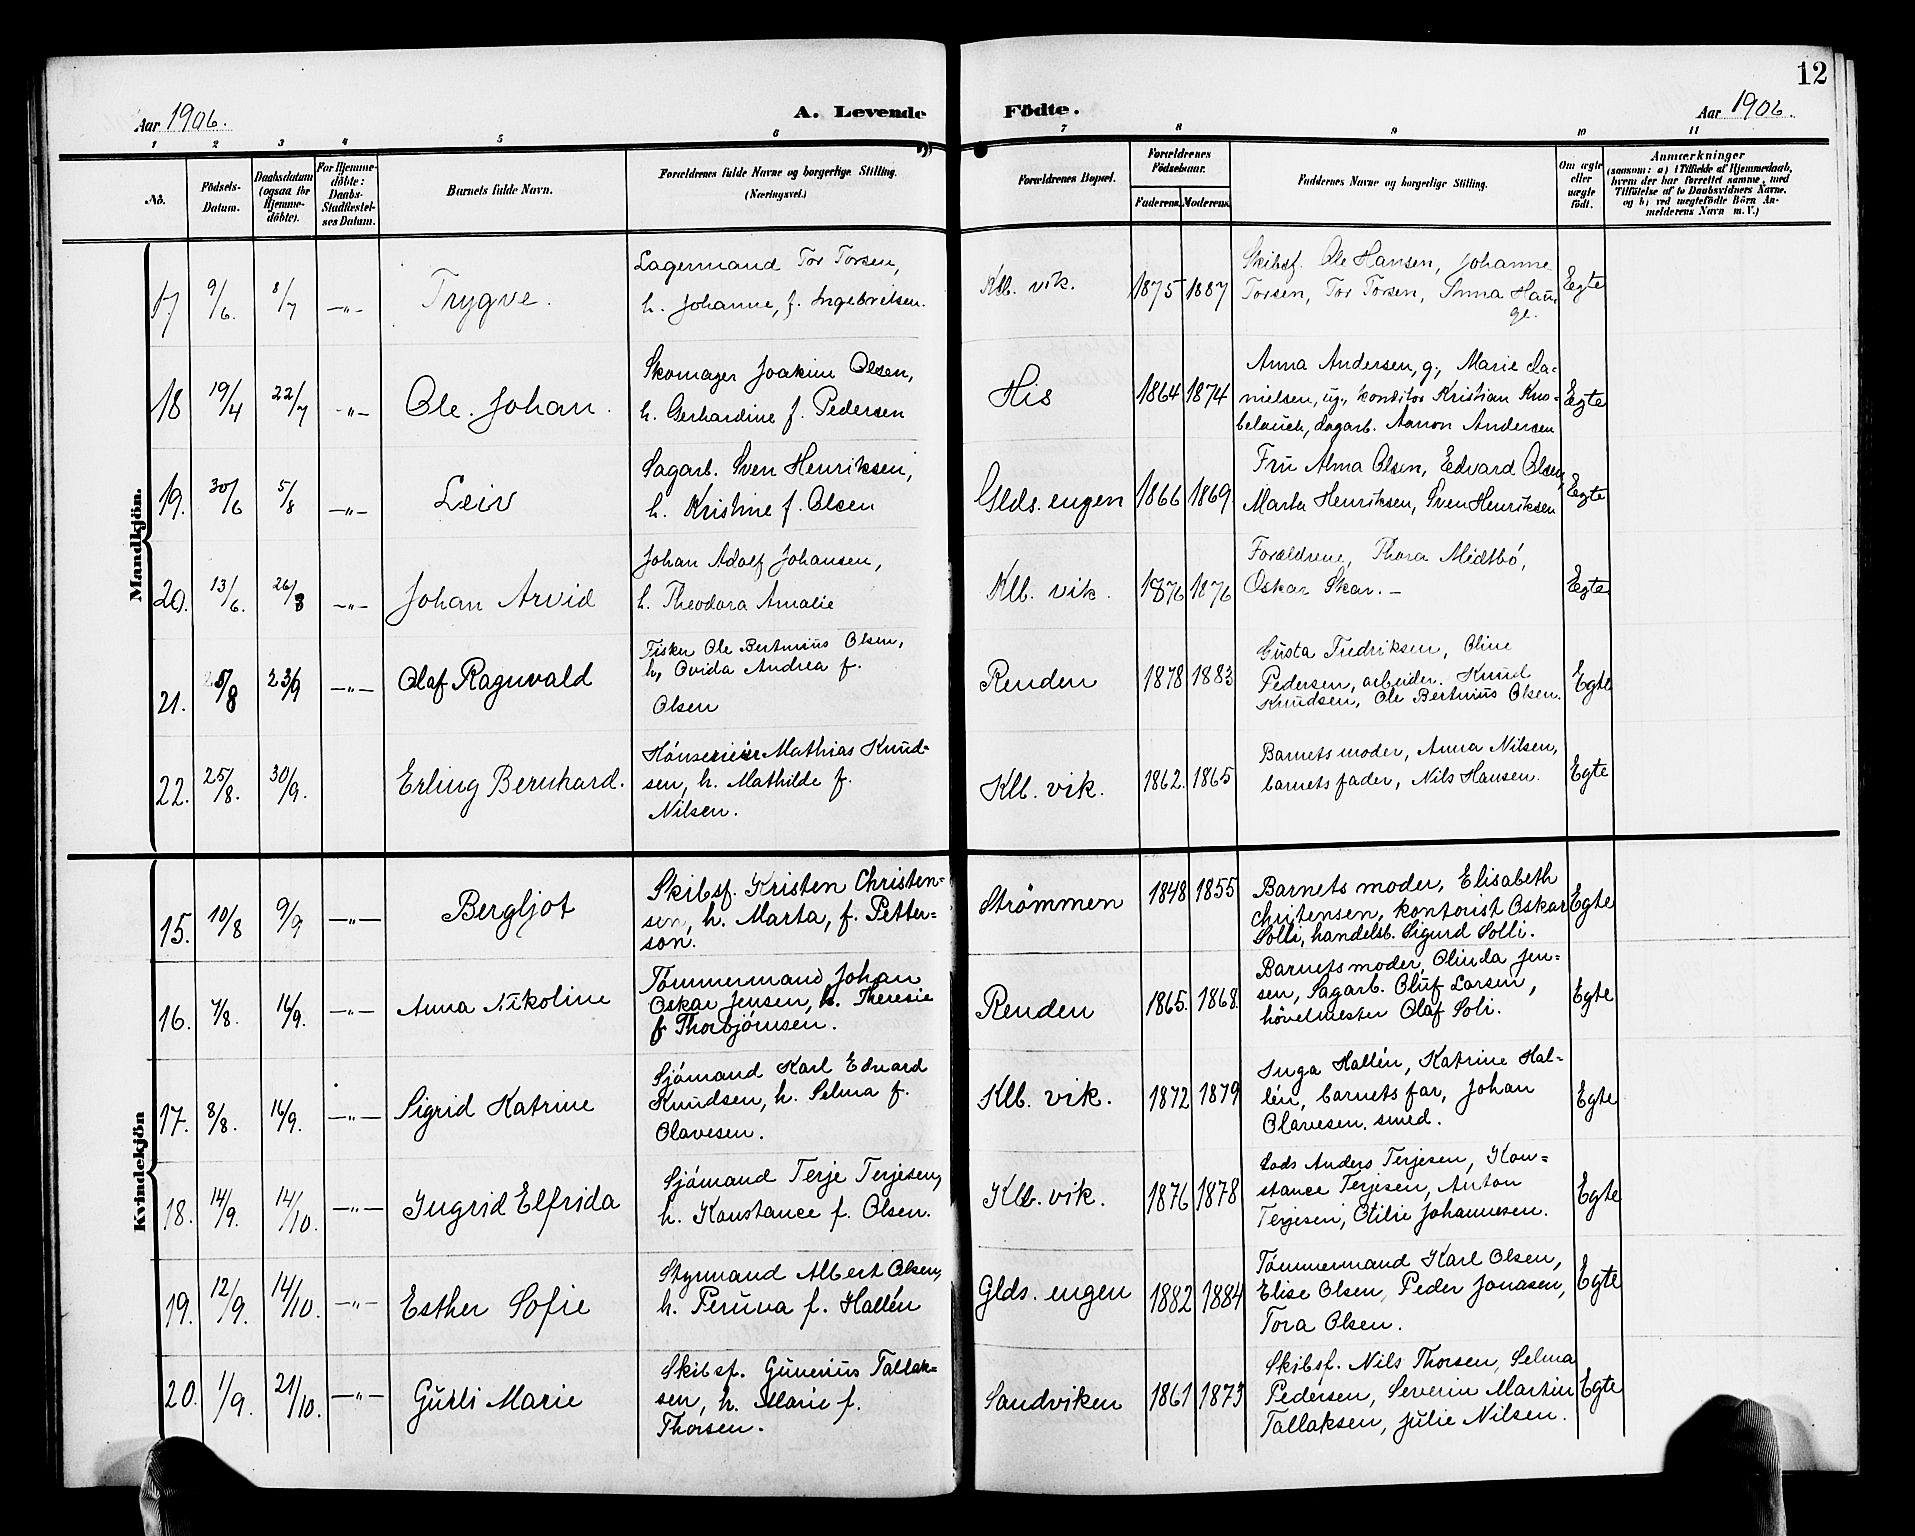 12
Aar 1906. A. Levende Födte. Aar 1906.
1 2 3 4 5 6 7 8 9 10 11
No. Födsels-Datum. Daabsdatum (ogsaa for Hjemmedöbte). For Hjemmedöbte: Daabs-Stadfæstelses Datum. Barnets fulde Navn. Forældrenes fulde Navne og borgerlige Stilling. (Næringsvei.) Forældrenes Bopæl. Forældrenes Födselsaar. Faderens. Moderens. Faddernes Navne og borgerlige Stilling. Om ægte eller uægte födt. Anmærkninger
(saasom: a) i Tilfælde af Hjemmedaab, hvem der har forrettet samme, med Tilföielse af to Daabsvidners Navne, og b) ved uægtefödte Börn Anmelderens Navn m. V.)
Mandkjön.
17 9/6. 8/7 —"— Trygve.
Lagermand Tor Torsen,
h. Johanne, f. Ingebretsen.
Klb. vik. 1875 1887
Skibsf. Ole Hansen, Johanne
Torsen, Tor Torsen, Anna Hau-
ge.
Egte
18 19/4 22/7 —"— Ole. Johan.
Skomager Joakim Olsen,
h. Gerhardine f. Pedersen
His 1864 1874
Anna Andersen, g., Marie Da-
nielsen, ug., konditor Kristian Kno-
belauch, dagarb. Aanon Andersen
Egte
19. 30/6 5/8 —"— Leiv
Sagarb. Sven Henriksen,
h. Kristine f. Olsen
Glds. engen 1866 1869.
Fru Alma Olsen, Edvard Olsen,
Marta Henriksen, Sven Henriksen
Egte
20. 13/6. 26/8 —"— Johan Arvid
Johan Adolf Johansen,
h. Theodora Amalie
Klb. vik. 1876 1876
Forældrene, Thora Midtbö,
Oskar Skar. —
Egte
21. 25/8 23/9 —"— Olaf Ragnvald
Fisker Ole Bertinius Olsen,
h, Ovida Andrea f.
Olsen
Renden 1878 1883
Gusta Fredriksen, Oline
Pedersen, arbeider. Knud
Knudsen, Ole Bertinius Olsen.
Egte
22. 25/8. 30/9. Erling Bernhard.
Hönseeier Mathias Knud-
sen, h. Mathilde f.
Nilsen.
Klb. vik. 1862. 1865
Barnets moder, Anna Nilsen,
barnets fader, Nils Hansen.
Egte
Kvindekjön
15. 10/8 9/9 —"— Bergljot
Skibsf. Kristen Christen-
sen, h. Marta, f. Petter-
son.
Strömmen 1848 1855
Barnets moder, Elisabeth
Christensen, kontorist Oskar
Solli, handelsb. Sigurd Solli.
Egte
16. 7/8. 16/9. —"— Anna Nikoline
Tömmermand Johan
Oskar Jensen, h. Theresie
f. Thorbjörnsen.
Renden 1865. 1868.
Barnets moder, Olinda Jen-
sen, Sagarb. Oluf Larsen,
hövelmester Olaf Soli.
Egte
17. 8/8. 16/9. —"— Sigrid Katrine
Sjömand Karl Edvard
Knudsen, h. Selma f.
Olavesen.
Klb. vik. 1872 1879
Inga Hallén, Katrine Hal-
lén, barnets far, Johan
Olavesen. smed.
Egte
18. 14/9. 14/10. —"— Ingrid Elfrida
Sjömand Terje Terjesen,
h. Konstance f. Olsen.
Klb. vik. 1876 1878
Lods Anders Terjesen, Kon-
stance Terjesen, Anton
Terjesen, Otilie Johannesen.
Egte
19. 12/9. 14/10. —"— Esther Sofie
Styrmand Albert Olsen,
h. Peruva f. Hallén
Glds. engen 1882 1884
Tømmermand Karl Olsen,
Elise Olsen, Peder Jonasen,
Tora Olsen.
Egte
20. 1/9. 21/10. —"— Gurli Marie
Skibsf. Gunerius Tallak-
sen, h. Marie f.
Thorsen.
Sandviken 1861 1873
Skibsf. Nils Thorsen, Selma
Pedersen, Severin Martin
Tallaksen, Julie Nilsen.
Egte